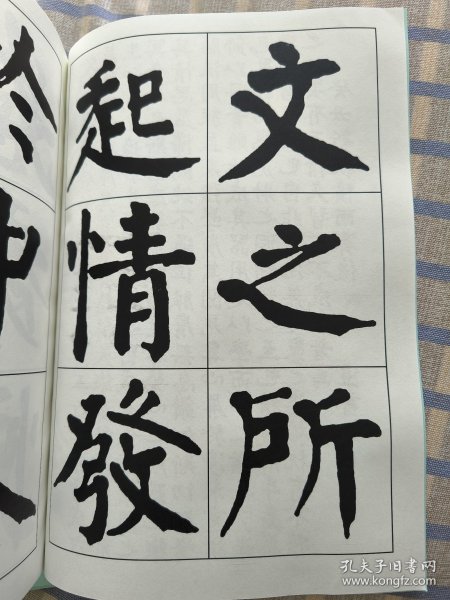 文之所
起情發
孔夫子旧书网
www.kongfz.com